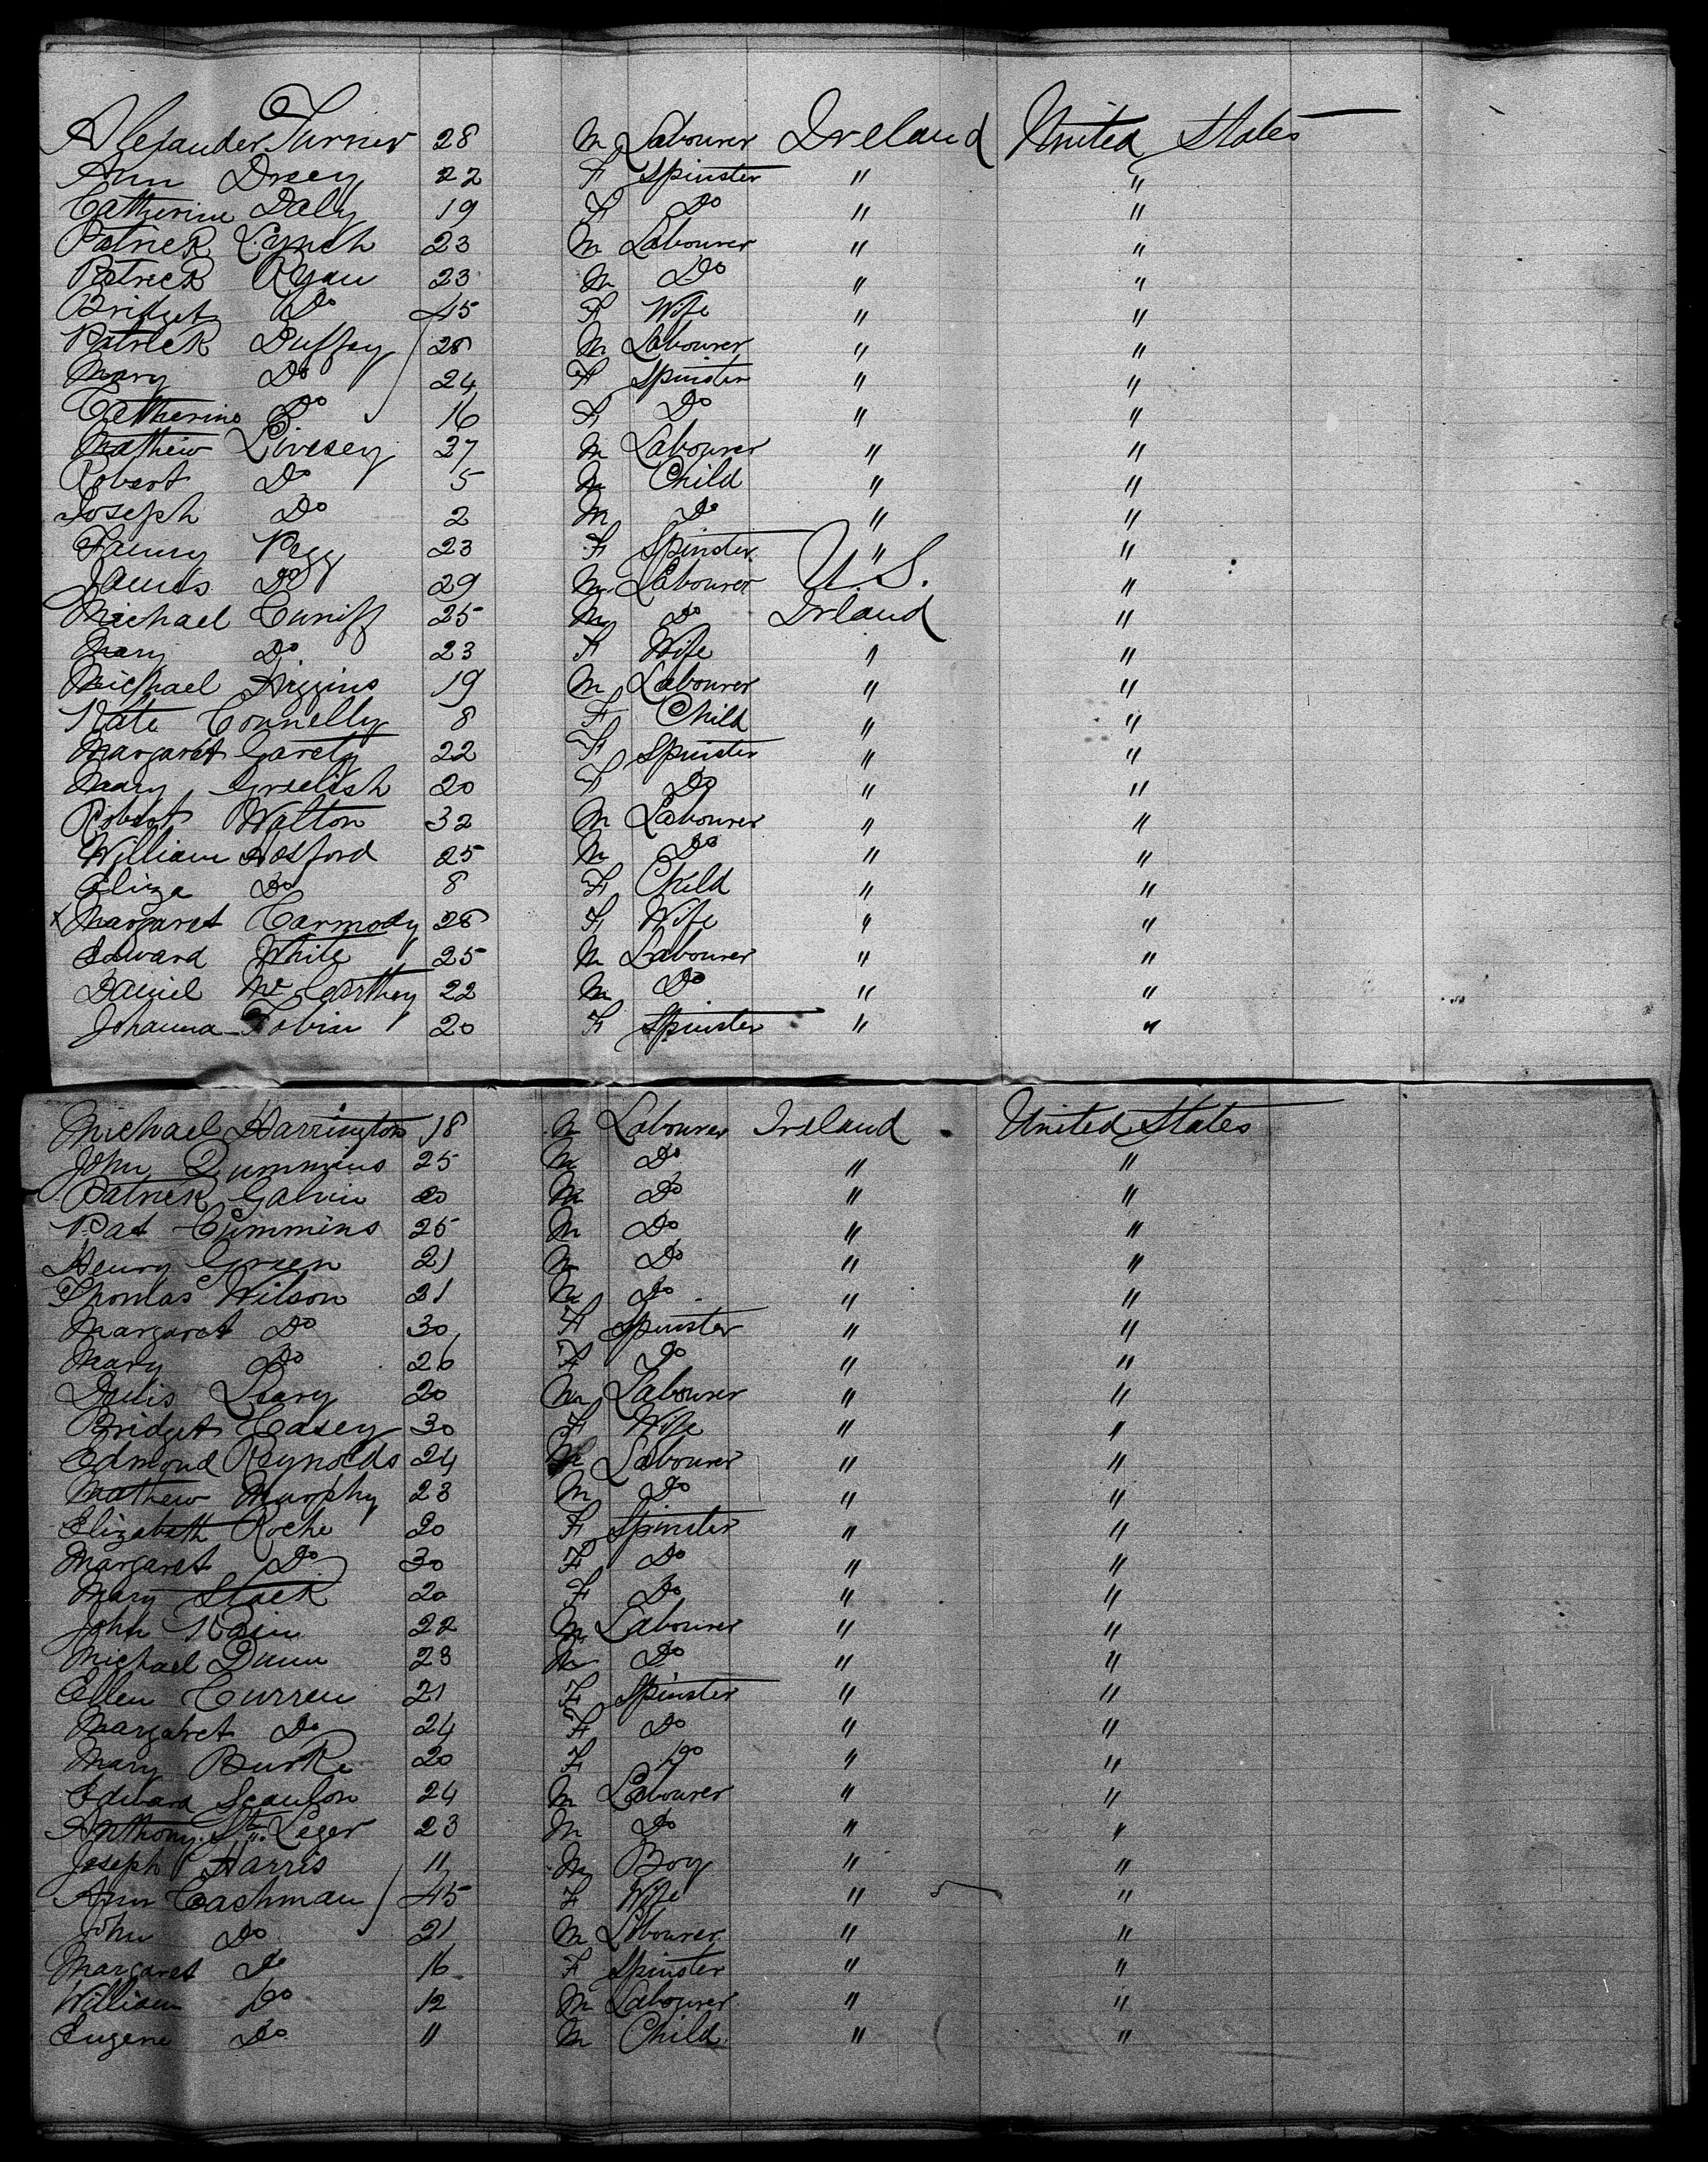 Alexander Turner 28 M Labourer Ireland United States
Ann 22 F Spinster " "
Catherine Daly 19 F Do " "
Patrick Lynch 23 M Labourer " "
Patrick Ryan 23 M Do " "
Bridget Do 45 F Wife " "
Patrick Duffey 28 M Labourer " "
Mary Do 24 F Spinster " "
Catherine Do 16 F Do " "
Mathew Livesey 27 M Labourer " "
Robert Do 5 M Child " "
Joseph Do 2 M Do " "
Fanny Pegg 23 F Spinster " "
James Do 29 M Labourer U.S. "
Michael Cuniff 25 M Do Irland "
Mary Do 23 F Wife " "
Michael Higgins 19 M Labourer " "
Kate Connelly 8 F Child " "
Margaret Garety 22 F Spinster " "
Mary Greelish 20 F Do " "
Robert Walton 32 M Labourer " "
William Hosford 25 M Do " "
Eliza Do 8 F Child " "
x Margaret Carmody 28 F Wife " "
Edward White 25 M Labourer " "
Daniel Mc Carthey 22 M Do " "
Johanna Tobin 20 F Spinster " "
Michael Harrington 18 M Labourer Ireland United States
John 25 M Do " "
Patrick Galvin 20 M Do " "
Pat Cummins 25 M Do " "
Henry Green 21 M Do " "
Thomas Wilson 21 M Do " "
Margaret Do 30 F Spinster " "
Mary Do 26 F Do " "
Denis Leary 20 M Labourer " "
Bridget Casey 30 F Wife " "
Edmond Reynolds 24 M Labourer " "
Mathew Murphy 23 M Do " "
Elizabeth Roche 20 F Spinster " "
Margaret Do 30 F Do " "
Mary Stack 20 F Do " "
John Kain 22 M Labourer " "
Michael Dunn 23 M Do " "
Ellen Curren 21 F Spinster " "
Margaret Do 24 F Do " "
Mary Burke 20 F Do " "
Edward Scanlon 24 M Labourer " "
Anthony St. Leger 23 M Do " "
Joseph Harris 11 M Boy " "
Ann Cashman 45 F Wife " "
John Do 21 M Labourer " "
Margaret Do 16 F Spinster " "
William Do 12 M Labourer " "
Eugene Do 11 M Child " "